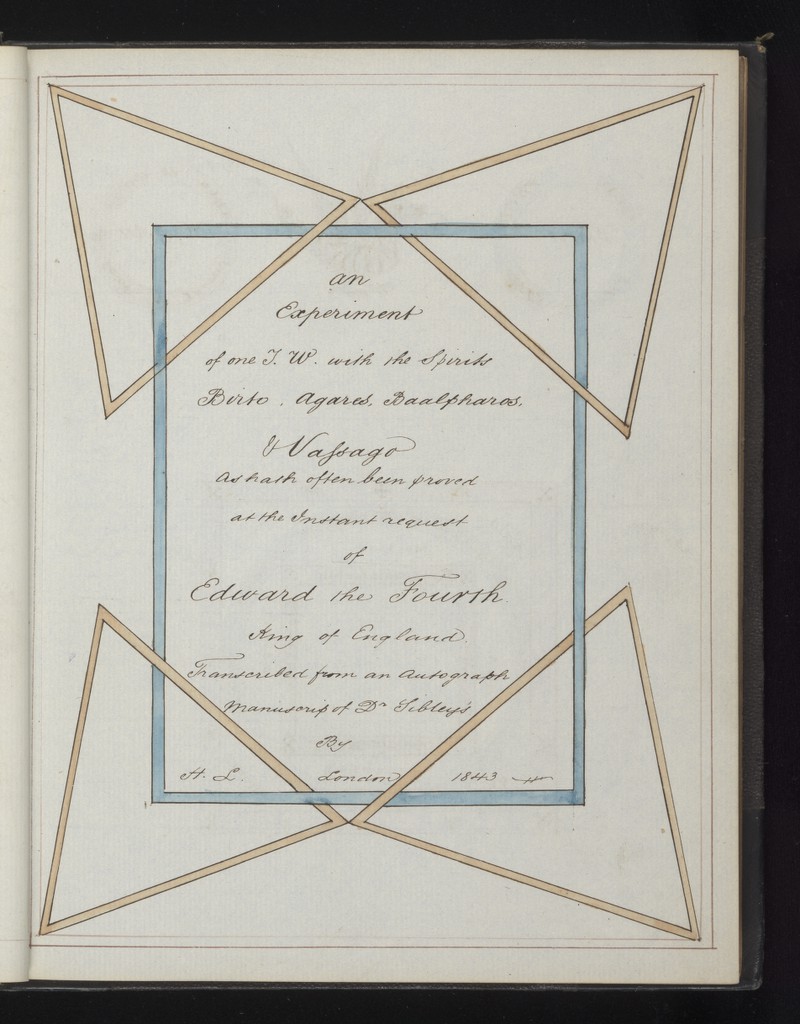 an
Experiment
of one T. W. with the Spirits
Birto, Agares, Baalpharos,
& Vaſsago
As hath often been proved
at the Instant request
of
Edward the Fourth
King of England.
Transcribed from an Autograph
Manuscrip of Dr Sibley's
By
H. L. London 1843